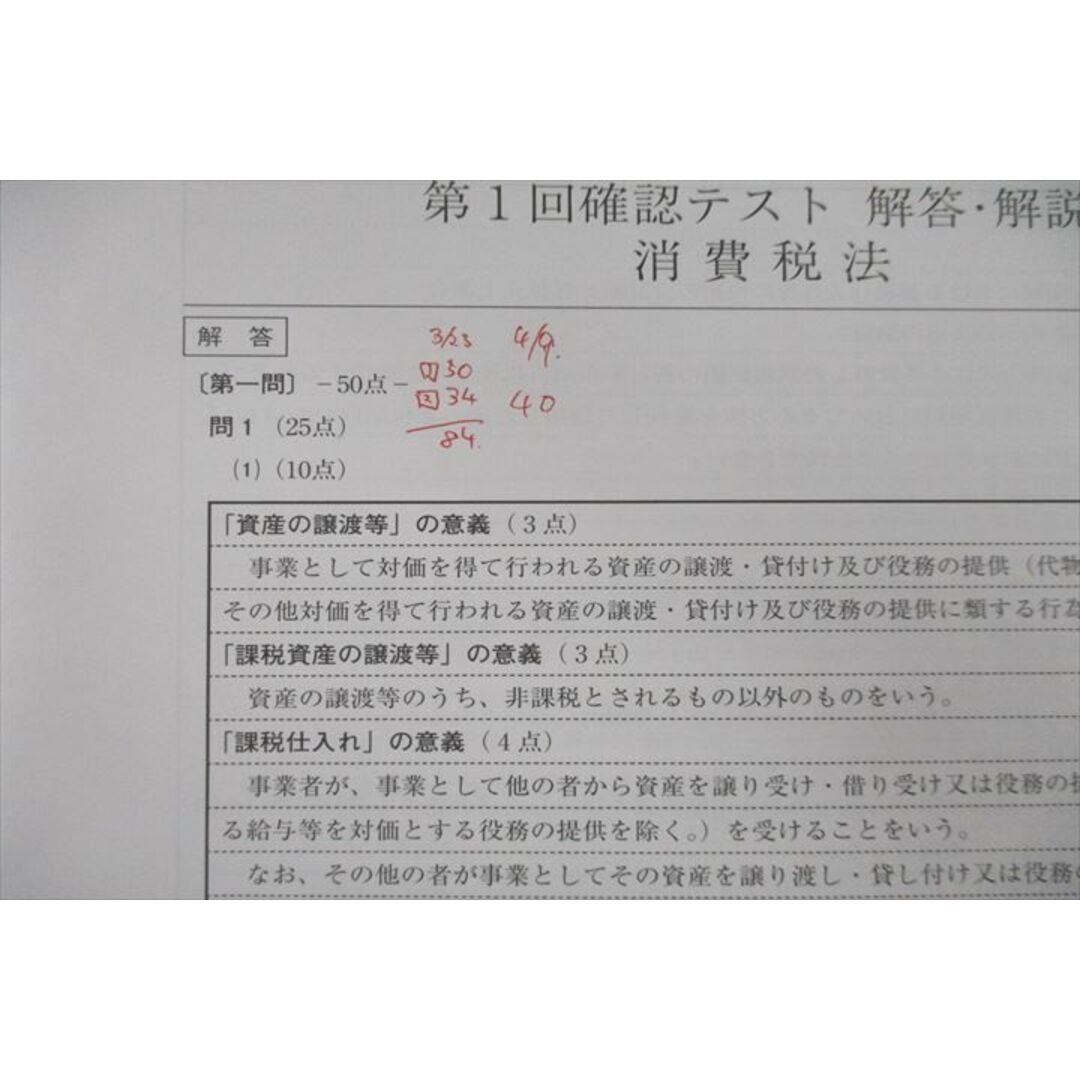 第1回確認テスト 解答・解説
消費税法
解答
3/23 4/9.
〔第一問〕 －50点－
1 30
2 34 40
84.
問1 （25点）
(1) （10点）
「資産の譲渡等」の意義（3点）
事業として対価を得て行われる資産の譲渡・貸付け及び役務の提供（代物
その他対価を得て行われる資産の譲渡・貸付け及び役務の提供に類する行為
「課税資産の譲渡等」の意義（3点）
資産の譲渡等のうち、非課税とされるもの以外のものをいう。
「課税仕入れ」の意義（4点）
事業者が、事業として他の者から資産を譲り受け・借り受け又は役務の提
る給与等を対価とする役務の提供を除く。）を受けることをいう。
なお、その他の者が事業としてその資産を譲り渡し・貸し付け又は役務の